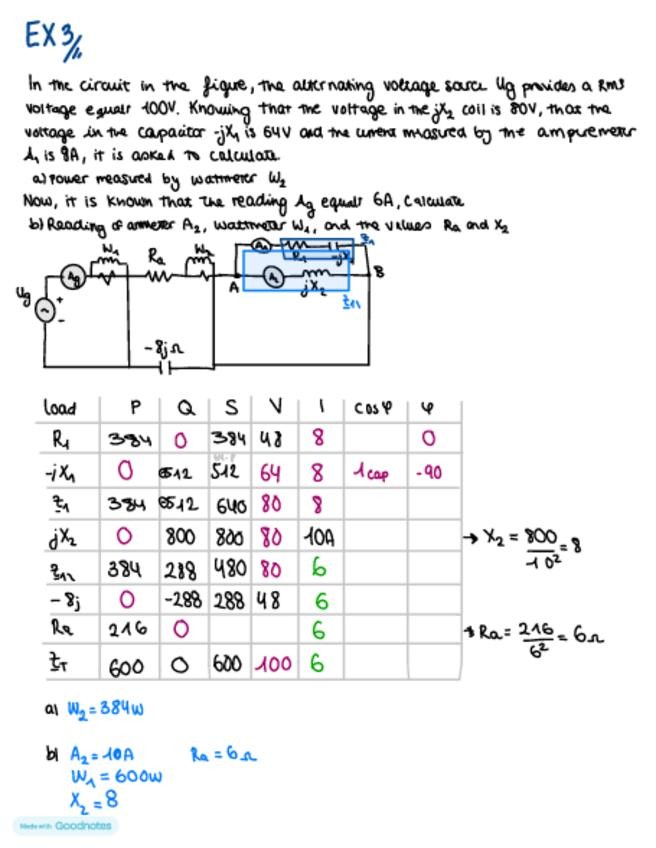 EX3//
In the circuit in the figure, the alternating voltage source Ug provides a RMS
voltage equals 100V. Knowing that the voltage in the jX2 coil is 80V, that the
voltage in the capacitor -jX1 is 64V and the current measured by the amperemeter
A1 is 8A, it is asked to calculate
a) Power measured by wattmeter W2
Now, it is known that the reading Ag equals 6A, calculate
b) Reading of ammeter A2, wattmeter W1, and the values Ra and X2
W1 Ra W2 R1 -jX1 Z1
Ag A jX2 B
Ug + - Z11
-8jΩ
Load P Q S V I cosφ φ
R1 384 0 384 48 8 0
-jX1 0 512 512 64 8 1cap -90
Z1 384 512 640 80 8
jX2 0 800 800 80 10A → X2 = 800/10² = 8
384 288 480 80 6
-8j 0 -288 288 48 6
Ra 216 0 6 → Ra = 216/6² = 6Ω
ZT 600 0 600 100 6
a) W2 = 384W
b) A2 = 10A Ra = 6Ω
W1 = 600W
X2 = 8
Made with Goodnotes